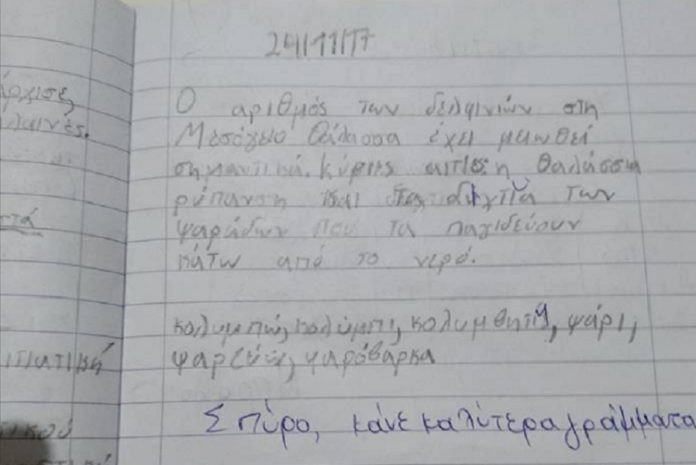 άρχισε
24/11/17
Ο αριθμός των δελφινιών στη
Μεσόγειο θάλασσα έχει μειωθεί
σημαντικά. Κύριες αιτίες η θαλάσσια
ρύπανση και τα δίχτυα των
ψαράδων που τα παγιδεύουν
κάτω από το νερό.
κολυμπώ, κολύμπι, κολυμβητή, ψάρι,
ψαρεύω, ψαρόβαρκα
Σπύρο, κάνε καλύτερα γράμματα